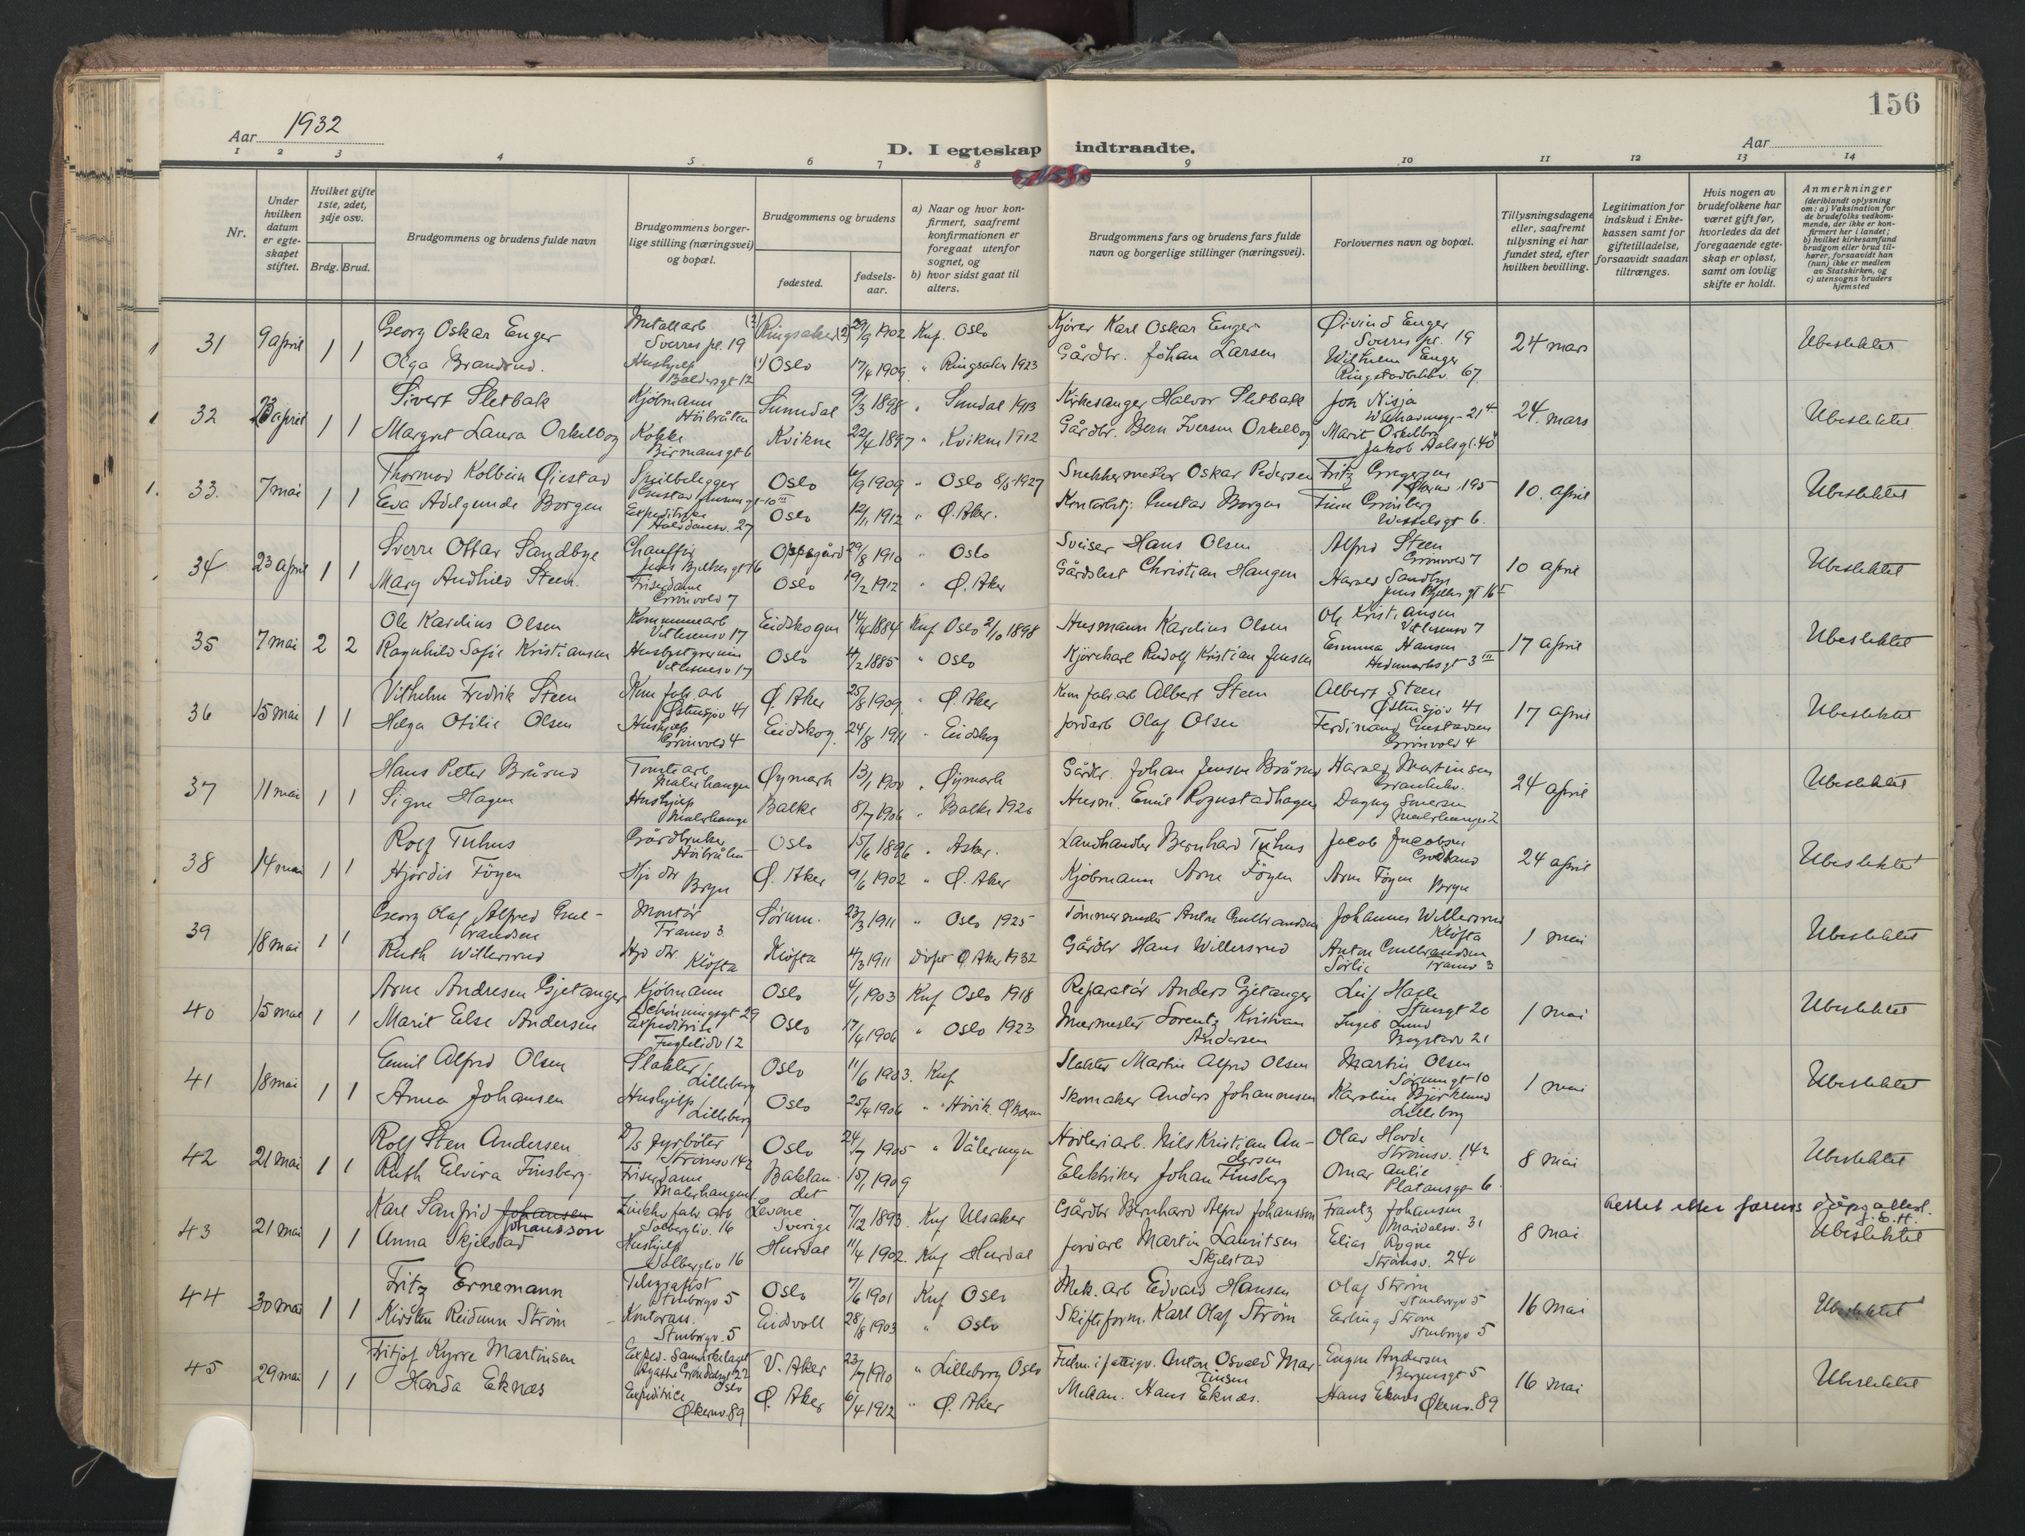 156
Aar 1932
Aar
D. I egteskap indtraadte.
1 2 3 4 5 6 7 8 9 10 11 12 13 14
Nr.
Under hvilken datum er egteskapet stiftet.
Hvilket gifte 1ste, 2det, 3dje osv.
Brdg. Brud.
Brudgommens og brudens fulde navn
Brudgommens borgerlige stilling (næringsvei) og bopæl.
Brudgommens og brudens
fødested.
fødselsaar.
a) Naar og hvor konfirmert, saafremt konfirmationen er foregaat utenfor sognet, og
b) hvor sidst gaat til alters.
Brudgommens fars og brudens fars fulde navn og borgerlige stillinger (næringsvei).
Forlovernes navn og bopæl.
Tillysningsdagene eller, saafremt tillysning ei har fundet sted, efter hvilken bevilling.
Legitimation for indskud i Enkekassen samt for giftetilladelse, forsaavidt saadan tiltrænges.
Hvis nogen av brudefolkene har været gift før, hvorledes da det foregaaende egteskap er opløst, samt om lovlig skifte er holdt.
Anmerkninger (deriblandt oplysning om: a) Vaksination for de brudefolks vedkommende, der ikke er konfirmert her i landet; b) hvilket kirkesamfund brudgom eller brud tilhører, forsaavidt han (hun) ikke er medlem av Statskirken, og c) utensogns bruders hjemsted
31 9 april 1 1 Georg Oskar Enger Metallarb Sverres pl. 19 Ringsaker 29/9 1902 Knf. Oslo Kjører Karl Oskar Enger Øivind Enger Sverres pl. 19 24 mars Ubeslektet
Olga Brandrud. Hushjelp Baldersgt 12 Oslo 17/4 1909 " Ringsaker 1923 Gårdbr. Johan Larsen Wilhelm Enger 67
32 april 1 1 Sivert Sletbak Kjøbmann Høibråten Sunndal 9/3 1898 " Sundal 1913 Kirkesanger Halvor Sletbak Jon 24. mars Ubeslektet
Margret Laura Orkelbog Kokke gt 6 Kvikne 22/4 1897 " Kvikne 1912 Gårdbr. Bern Iversen Orkelbog Marit Orkelbog Jakob Aalsgt. 40
33 7 mai 1 1 Thormod Kolbein Øiestad Oslo 6/9 1909 " Oslo 1927 Snekkermester Oskar Pedersen Fritz Gregersen 195 10. april Ubeslektet
Eva Adelgunde Borgen 27 Oslo 12/1 1912 " Ø. Aker. Gustav Borgen Finn Grønberg Wesselsgt 6.
34 23 april 1 1 Sverre Ottar Sandbye Chauffør Oppegård 29/8 1910 " Oslo Sveiser Hans Olsen Alfred Steen Grønvold 7 10 april Ubeslektet
Mary Andhild Steen. Friserdame Grønvold 7 Oslo 19/2 1912 " Ø. Aker Christian Haugen Harald Sandbye
35 7 mai 2 2 Ole Karelius Olsen Kommunearb 17 Eidskogen 14/4 1884 Knf Oslo 2/10 1898 Husmann Karelius Olsen Ole Kristiansen 7 17 april Ubeslektet
Ragnhild Sofie Kristiansen 17 Oslo 4/2 1885 " Oslo Kjørekarl Rudolf Kristian Jensen Emma Hansen Hedmarksgt 3 III
36 15 mai 1 1 Vilhelm Fredrik Steen Østensjøv 41 Ø. Aker 25/8 1909 " Ø. Aker Albert Steen Albert Steen Østensjøv 41 17 april Ubeslektet
Helga Otilie Olsen Hushjelp Grønvold 4 Eidskog. 24/8 1911 " Eidskog Jordarb Olaf Olsen Ferdinand Gustavsen Grønvold 4
37 11 mai 1 1 Hans Petter Brårud Tomtearb Malerhaugen Øymark 13/1 1900 " Øymark Gårdbr. Johan Jensen Brårud Harald Martinsen 24 april Ubeslektet
Signe Hagen Hushjelp Malerhaugen Balke 8/7 1906 " Balke 1920 Husm. Emil Rognstadhagen Dagny
38 14 mai 1 1 Rolf Tuhus Gårdbruker Høibråten Oslo 15/6 1896 " Asker. Landhandler Bernhard Tuhus Jacob Jacobsen 24 april Ubeslektet
Hjørdis Føyen Hjv dtr Bryn Ø. Aker 9/6 1902 " Ø. Aker Kjøbmann Arne Føyen Arne Føyen Bryn
39 18 mai 1 1 Georg Olaf Alfred Gulbrandsen Montør Tramv 3. Sørum. 23/3 1911 " Oslo 1925 Tømmermester Anton Gulbrandsen Johannes Willersrud Kløfta 1 mai Ubeslektet
Ruth Willersrud Hjv dtr Kløfta Kløfta 4/3 1911 Ø. Aker 1932 Gårdbr Hans Willersrud Anton Gulbrandsen Tramv 3
40 15 mai 1 1 Arne Andresen Gjetanger Kjøbmann Schøningsgt 29 Oslo 4/1 1903 Knf Oslo 1918 Reparatør Anders Gjetanger Leif Hagle Stangt 20 1 mai Ubeslektet
Marit Else Andersen Expeditrise Fugleliv 12 Oslo 17/4 1906 " Oslo 1923 Murmester Lorentz Kristian Andersen Lund 21
41 18 mai 1 1 Emil Alfred Olsen Slakter Lilleborg Oslo 11/6 1903. Knf Slakter Martin Alfred Olsen Martin Olsen Sørumgt 10 1 mai Ubeslektet
Anna Johansen Hushjelp Lilleborg Oslo 25/4 1906 " Høvik Skomaker Anders Johannesen Karoline Bjørklund Lilleborg
42 21 mai 1 1 Rolf Sten Andersen D/s fyrbøter Strømsv 142 Oslo 24/7 1905 " Vålerengen Høvleriarb. Nils Kristian Andersen Olav Hovde Strømsv. 142 8 mai Ubeslektet
Ruth Elvira Finsberg Friserdame Malerhaugen Baklandet 15/1 1909 Elektriker Johan Finsberg Omar Aulie Platousgt 6
43 21 mai 1 1 Karl Sanfrid Johansen Johansson Solbergliv. 16 Levene Sverige 7/12 1893. Knf Ulsaker Gårdbr Bernhard Alfred Johansson Frantz Johansen Maridalsv. 31 8 mai Rettet efter farens dåpsattest. Ubeslektet
Anna Skjelstad Hushjelp Solbergliv 16 Hurdal 11/4 1902. Knf Hurdal Jordarb Martin Lauritsen Skjelstad Elias Rogne Strømsv. 240
44 30 mai 1 1 Fritz Ernemann Telegrafist Stenborgv 5 Oslo 7/6 1901 Knf Oslo Mek. arb Edvard Hansen Olaf Strøm Stenborgv 5 16 mai Ubeslektet
Kirsten Reidunn Strøm Kontorass. Stenborgv. 5 Eidsvoll 28/8 1903 " Oslo Skifteform. Karl Olaf Strøm Erling Strøm Stenborgv 5
45 29 mai 1 1 Fritjof Kyrre Martinsen Exped. Samvirkelaget Agathe Grøndahlsgt 22 Oslo V. Aker 23/7 1910 " Lilleborg Oslo Fulm. i fattigv. Anton Osvald Martinsen Eugen Andersen Bergensgt 5 16 mai Ubeslektet
Harda Eknæs Expeditrice Økernv. 89 Ø. Aker 6/4 1912 " Ø. Aker Mekan. Hans Eknæs. Hans Eknæs Økernv. 89